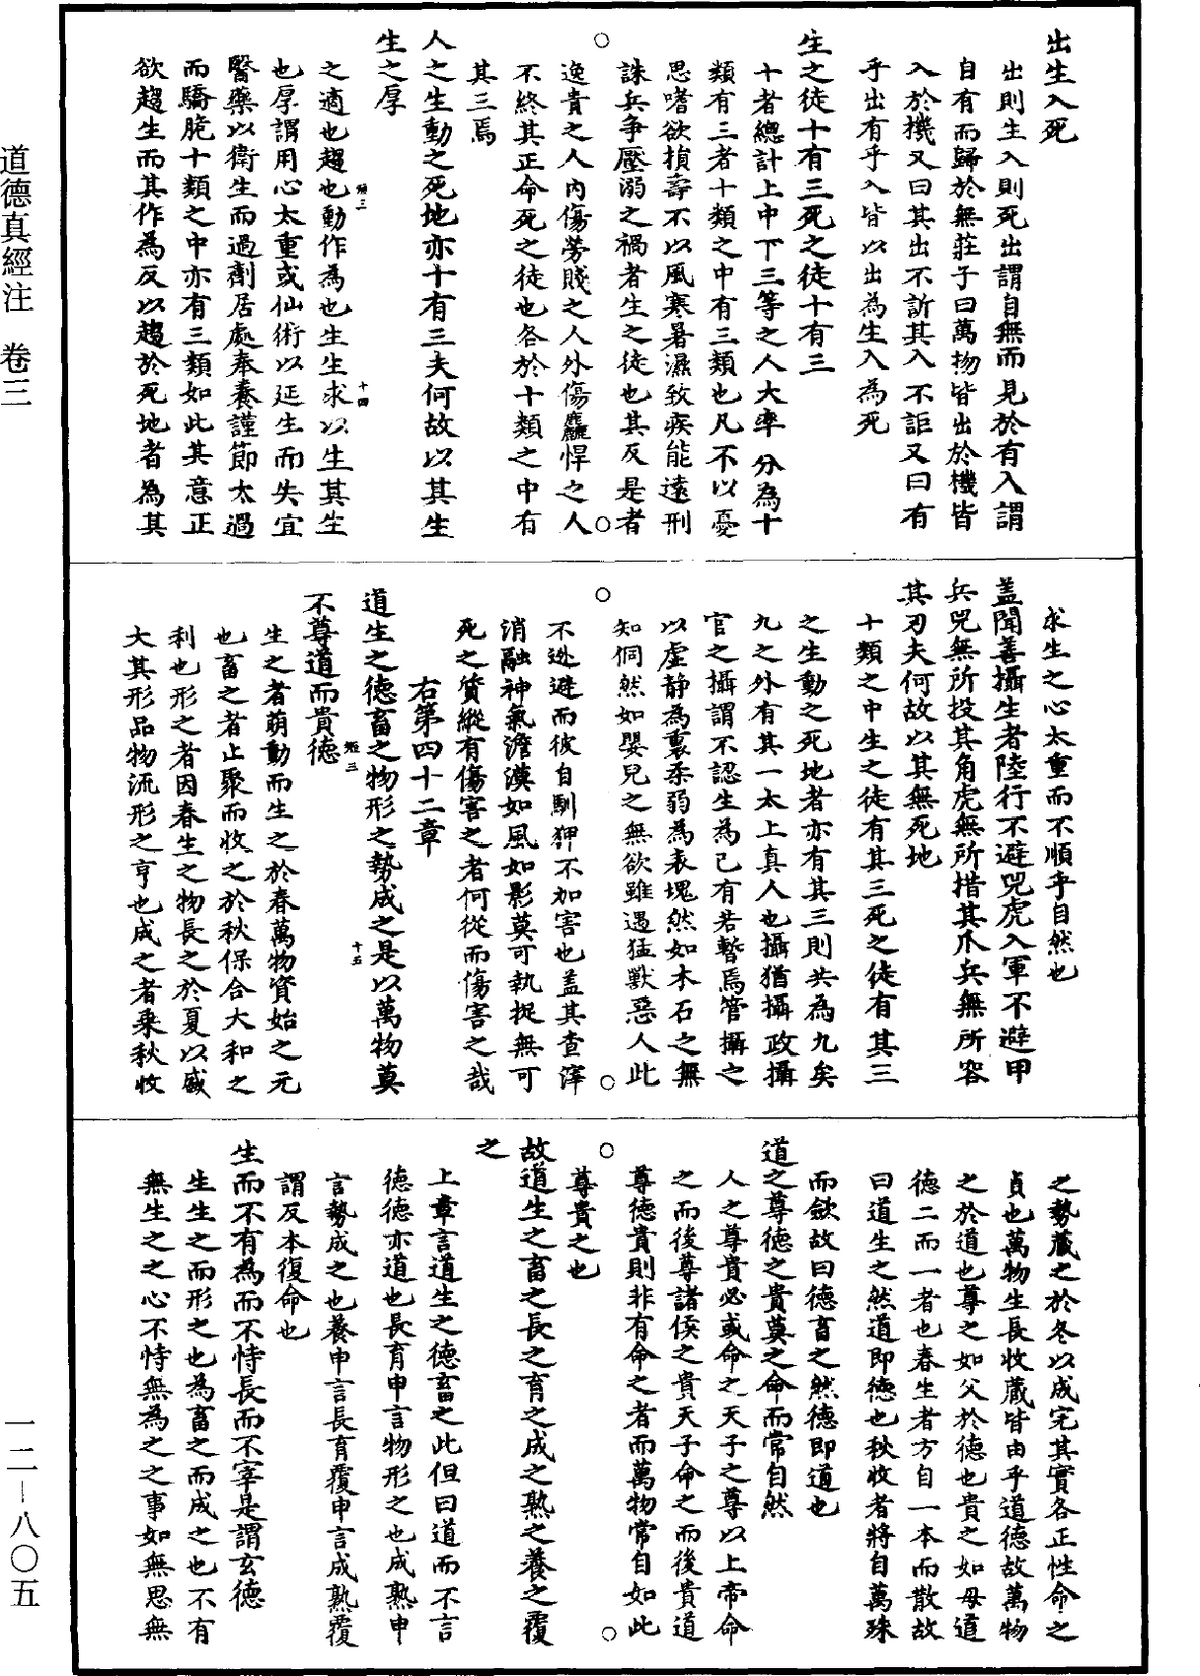 道德真經注　卷三
出生入死
出則生入則死出謂自無而見於有入謂
自有而歸於無莊子曰萬物皆出於機皆
入於機又曰其出不訢其入不詎又曰有
乎出有乎入皆以出為生入為死
生之徒十有三死之徒十有三
十者總計上中下三等之人大率分為十
類有三者十類之中有三類也凡不以憂
思嗜欲損壽不以風寒暑濕致疾能遠刑
誅兵爭壓溺之禍者生之徒也其反是者
逸貴之人內傷勞賤之人外傷麤悍之人
不終其正命死之徒也各於十類之中有
其三焉
人之生動之死地亦十有三夫何故以其生
生之厚
之適也趨也動作為也生生求以生其生
也厚謂用心太重或仙術以延生而失宜
醫藥以衛生而過劑居處奉養謹節太過
而驕脆十類之中亦有三類如此其意正
欲趨生而其作為反以趨於死地者為其
求生之心太重而不順乎自然也
蓋聞善攝生者陸行不避兕虎入軍不避甲
兵兕無所投其角虎無所措其爪兵無所容
其刃夫何故以其無死地
十類之中生之徒有其三死之徒有其三
之生動之死地者亦有其三則共為九矣
九之外有其一太上真人也攝猶攝政攝
官之攝謂不認生為已有若暫焉管攝之
以虛靜為裏柔弱為表塊然如木石之無
知侗然如嬰兒之無欲雖遇猛獸惡人此
不迯避而彼自馴狎不加害也蓋其查滓
消融神氣澹漠如風如影莫可執捉無可
死之質縱有傷害之者何從而傷害之哉
右第四十二章
道生之德畜之物形之勢成之是以萬物莫
不尊道而貴德
生之者萌動而生之於春萬物資始之元
也畜之者止聚而收之於秋保合大和之
利也形之者因春生之物長之於夏以盛
大其形品物流形之亨也成之者乘秋收
之勢藏之於冬以成完其實各正性命之
貞也萬物生長收藏皆由乎道德故萬物
之於道也尊之如父於德也貴之如母道
德二而一者也春生者方自一本而散故
曰道生之然道即德也秋收者將自萬殊
而斂故曰德畜之然德即道也
道之尊德之貴莫之命而常自然
人之尊貴必或命之天子之尊以上帝命
之而後尊諸侯之貴天子命之而後貴道
尊德貴則非有命之者而萬物常自如此
尊貴之也
故道生之畜之長之育之成之熟之養之覆
之
上章言道生之德畜之此但曰道而不言
德德亦道也長育申言物形之也成熟申
言勢成之也養申言長育覆申言成熟覆
謂反本復命也
生而不有為而不恃長而不宰是謂玄德
生生之而形之也為畜之而成之也不有
無生之之心不恃無為之之事如無思無
一二－八〇五